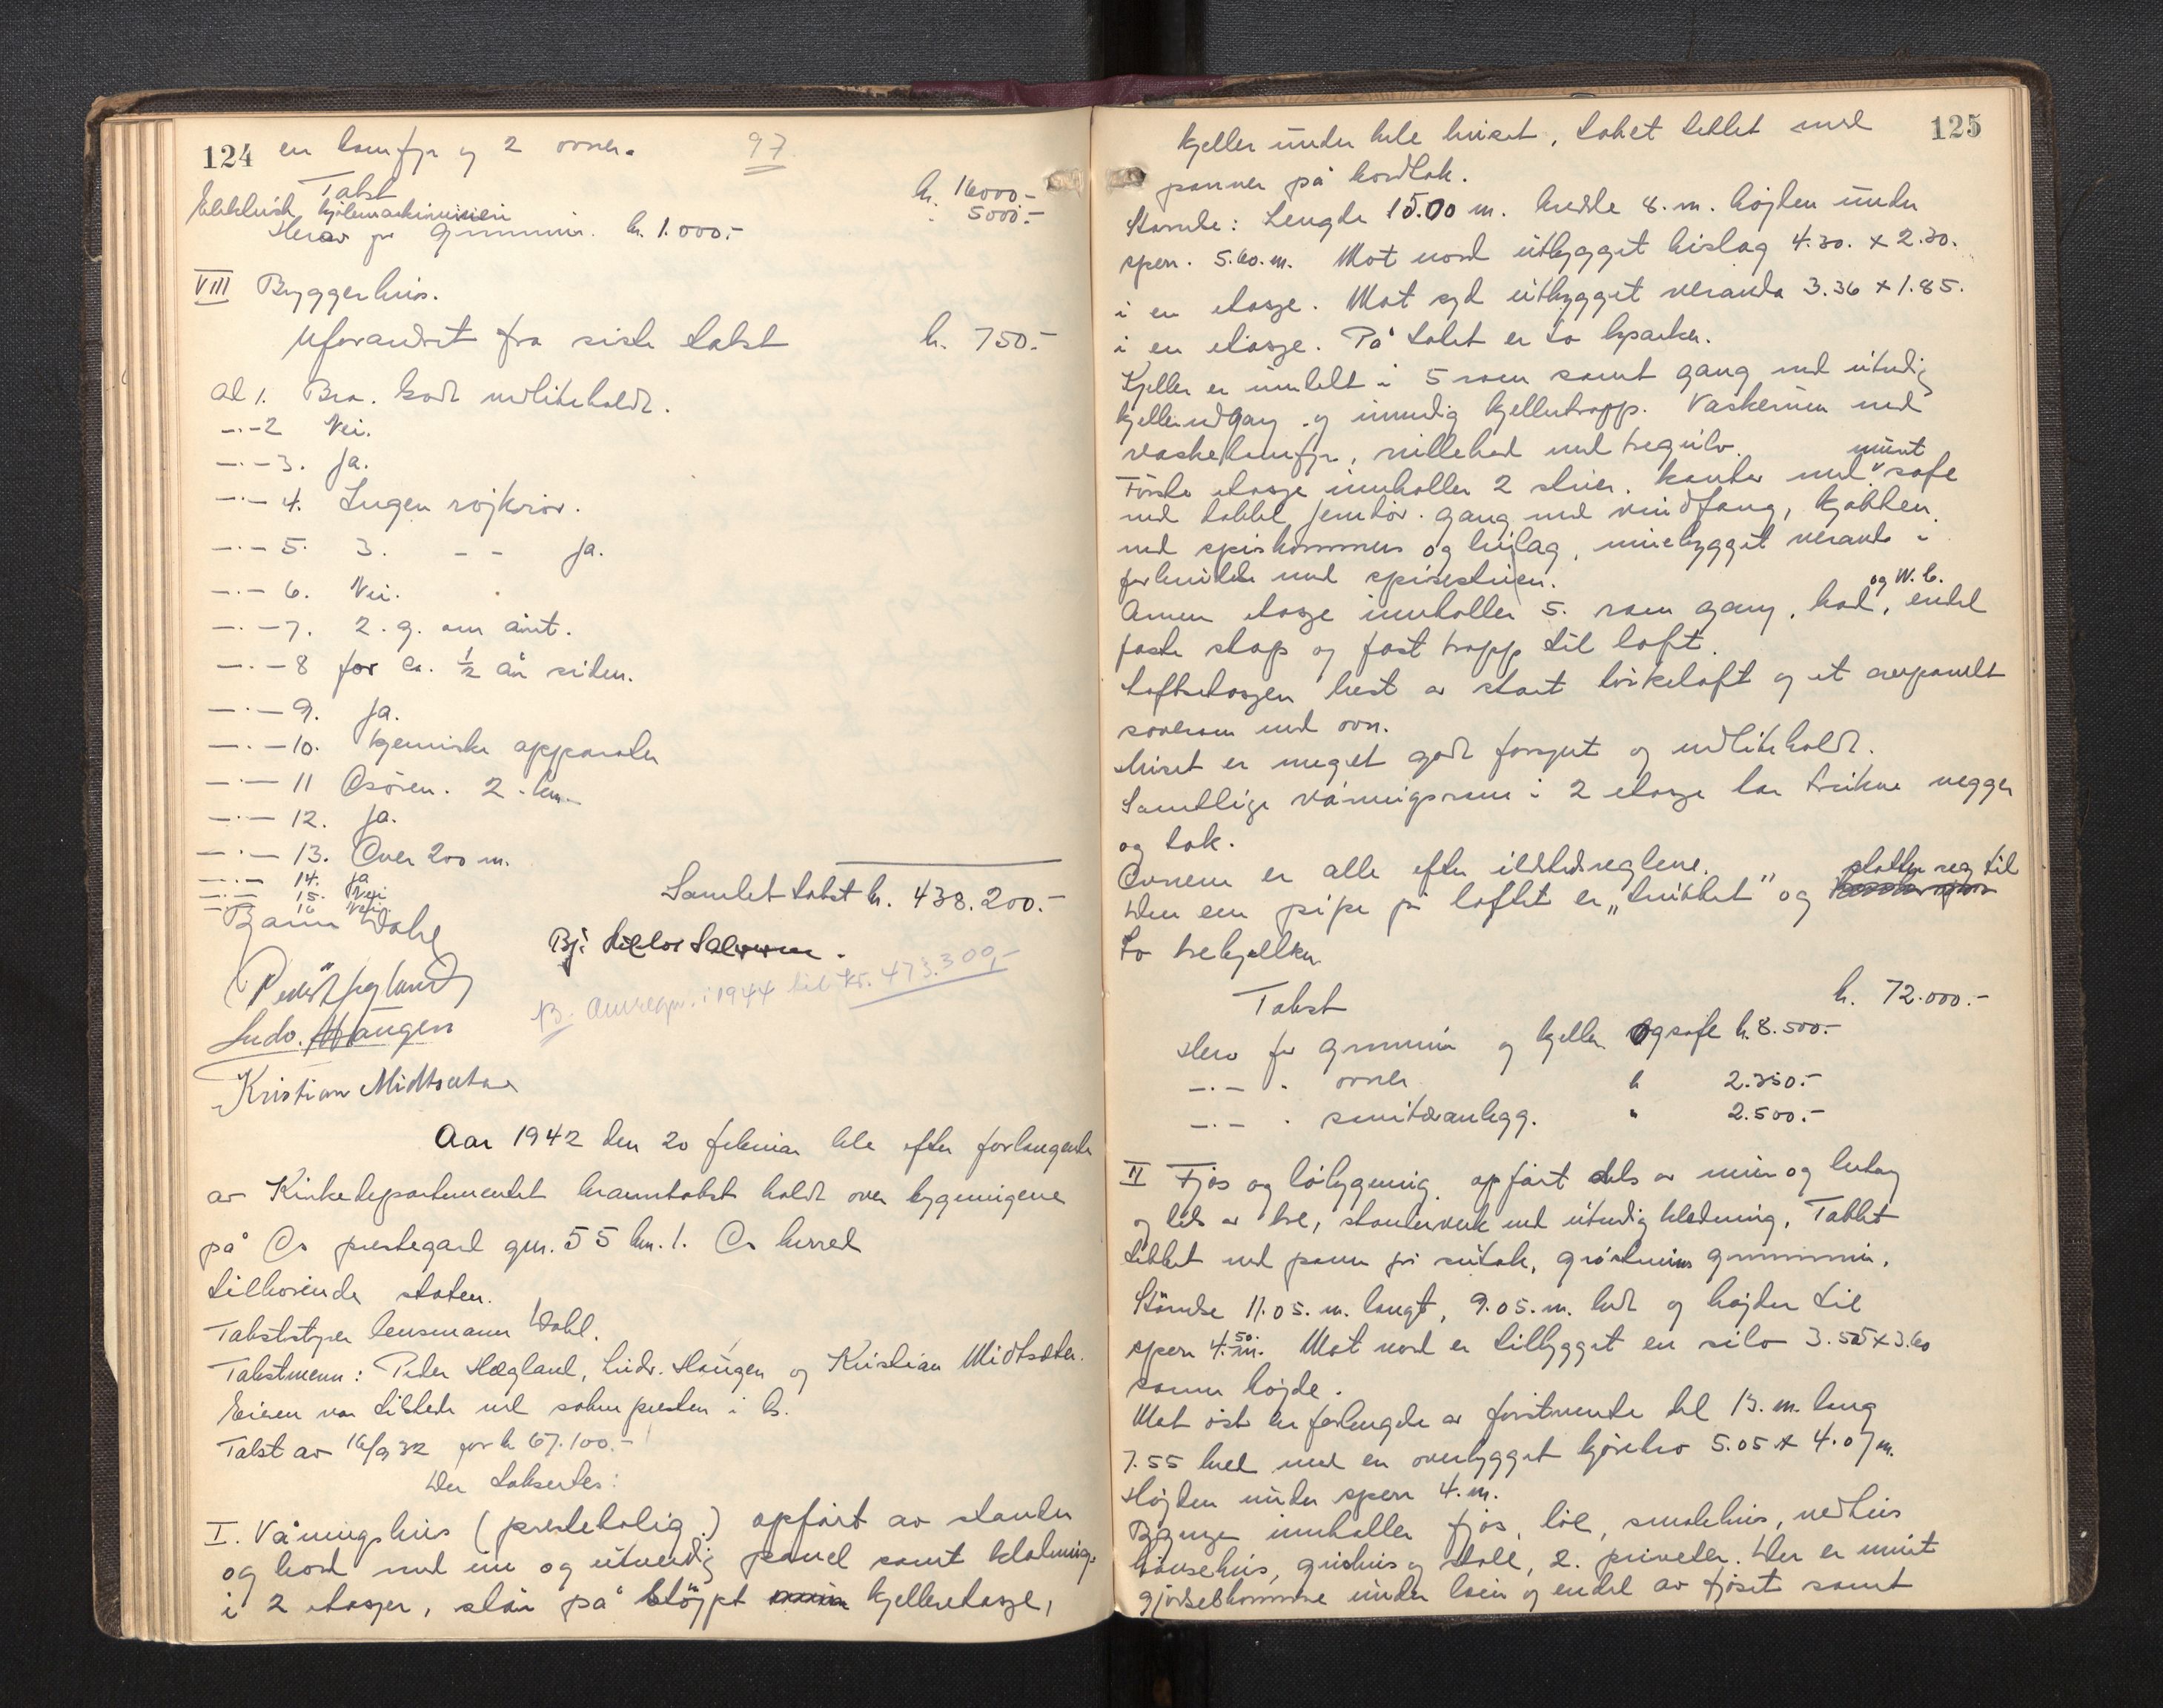 124 en komfyr og 2 ovner. 97
Takst kr. 16000.-
Elektrisk kjölemaskineri " 5000.-
Herav for grunnmur. kr. 1.000.-
VIII Bryggerhus.
Uforandret fra siste takst kr. 750.-
ad 1. Bra. Godt vedlikeholdt.
-.-2 Nei.
-.-3. Ja.
-.-4. Ingen röjkrör.
-.-5. 3. - - Ja.
-.-6. Nei.
-.-7. 2. g. om året.
-.-8 for ca. 1/2 år siden.
-.-9. Ja.
-.-10. kjemiske apparater
-.-11 Osören. 2. km.
-.-12. Ja.
-.-13. Over 200 m.
-.-14. Ja
-.-15. Nei
-.-16 Nei
Samlet takst kr. 438.200.-
Bjarne Dahl
Peder Hegland
Ludv. Haugen
Kristian Midtsæter
i 1944 til kr. 473.300,-
Aar 1942 den 20 februar ble efter forlangende
av Kirkedepartementet branntakst holdt over bygningene
på Os prestegard gnr. 55 bnr. 1. Os herred
tilhörende staten.
Takststyrer lensmann Dahl.
Takstmenn: Peder Hegland, Ludv. Haugen og Kristian Midtsæter.
Eieren var tilstede ved soknepresten i Os.
Takst av 16/9 32 for kr 67.100.-
Der taksertes:
I. Våningshus (prestebolig.) opfört av stender
og bord med inn og utvendig panel samt kledning.
i 2 etasjer, står på støypt kjelleretasje,
125
kjeller under hele huset, taket tekket med
panner på bordtak.
Størrelse: Lengde 15.00 m. bredde 8. m. højden under
sperr. 5.60. m. Mot nord utbygget bislag 4.30. x 2.30.
i en etasje. Mot syd utbygget veranda 3.36 x 1.85.
i en etasje. På taket er to kvister.
Kjeller er inndelt i 5 rom samt gang med utvendig
kjellernedgang og innvendig kjellertrapp. Vaskerum med
vaskekomfyr, rullebod med tregulv.
Første etasje inneholder 2 stuer. kontor med muret safe
med dobbel jerndör. gang med vindfang, kjøkken
med spiskammers og bislag, innebygget veranda i
forbindelse med spisestuen.
Annen etasje inneholder 5. rom gang, bad og W.C., endel
faste skap og fast trapp til loft.
Loftsetasjen best av stort törkeloft og et avpanelt
soverom med ovn.
Huset er meget godt forsynt og vedlikeholdt.
Samtlige våningsrum i 2 etasje har trukne vegger
og tak.
Ovnene er alle efter ildstedreglene.
Den ene pipe på loftet er "trukket" og støtter seg til
to trebjelker
Takst kr. 72.000.-
Herav for grunnmur og kjeller og safe kr. 8.500.-
-.- " ovner kr 2.350.-
-.- " sanitæranlegg. " 2.500.-
II Fjös og løbygning. opfört dels av mur og
og dels av tre, stenderverk med utvendig kledning, Taket
tekket med panner på sutak, gråsteins grunnmur.
Størrelse 11.05. m. langt, 9.05. m. bredt og højden til
sperr 4.50 m. Mot nord er tilbygget en silo 3.50 x 3.60
samme höjde.
Mot öst en forlengelse av forstnevnte del 13. m. lang
7.55 bred med en overbygget kjörebro 5.05 x 4.07 m.
Højden under sperr 4. m.
Bygningen inneholder fjös, löe, smalehus, vedhus
hönsehus, grishus og stall, 2. priveter. Der er muret
gjödselskommer under löen og endel av fjöset samt